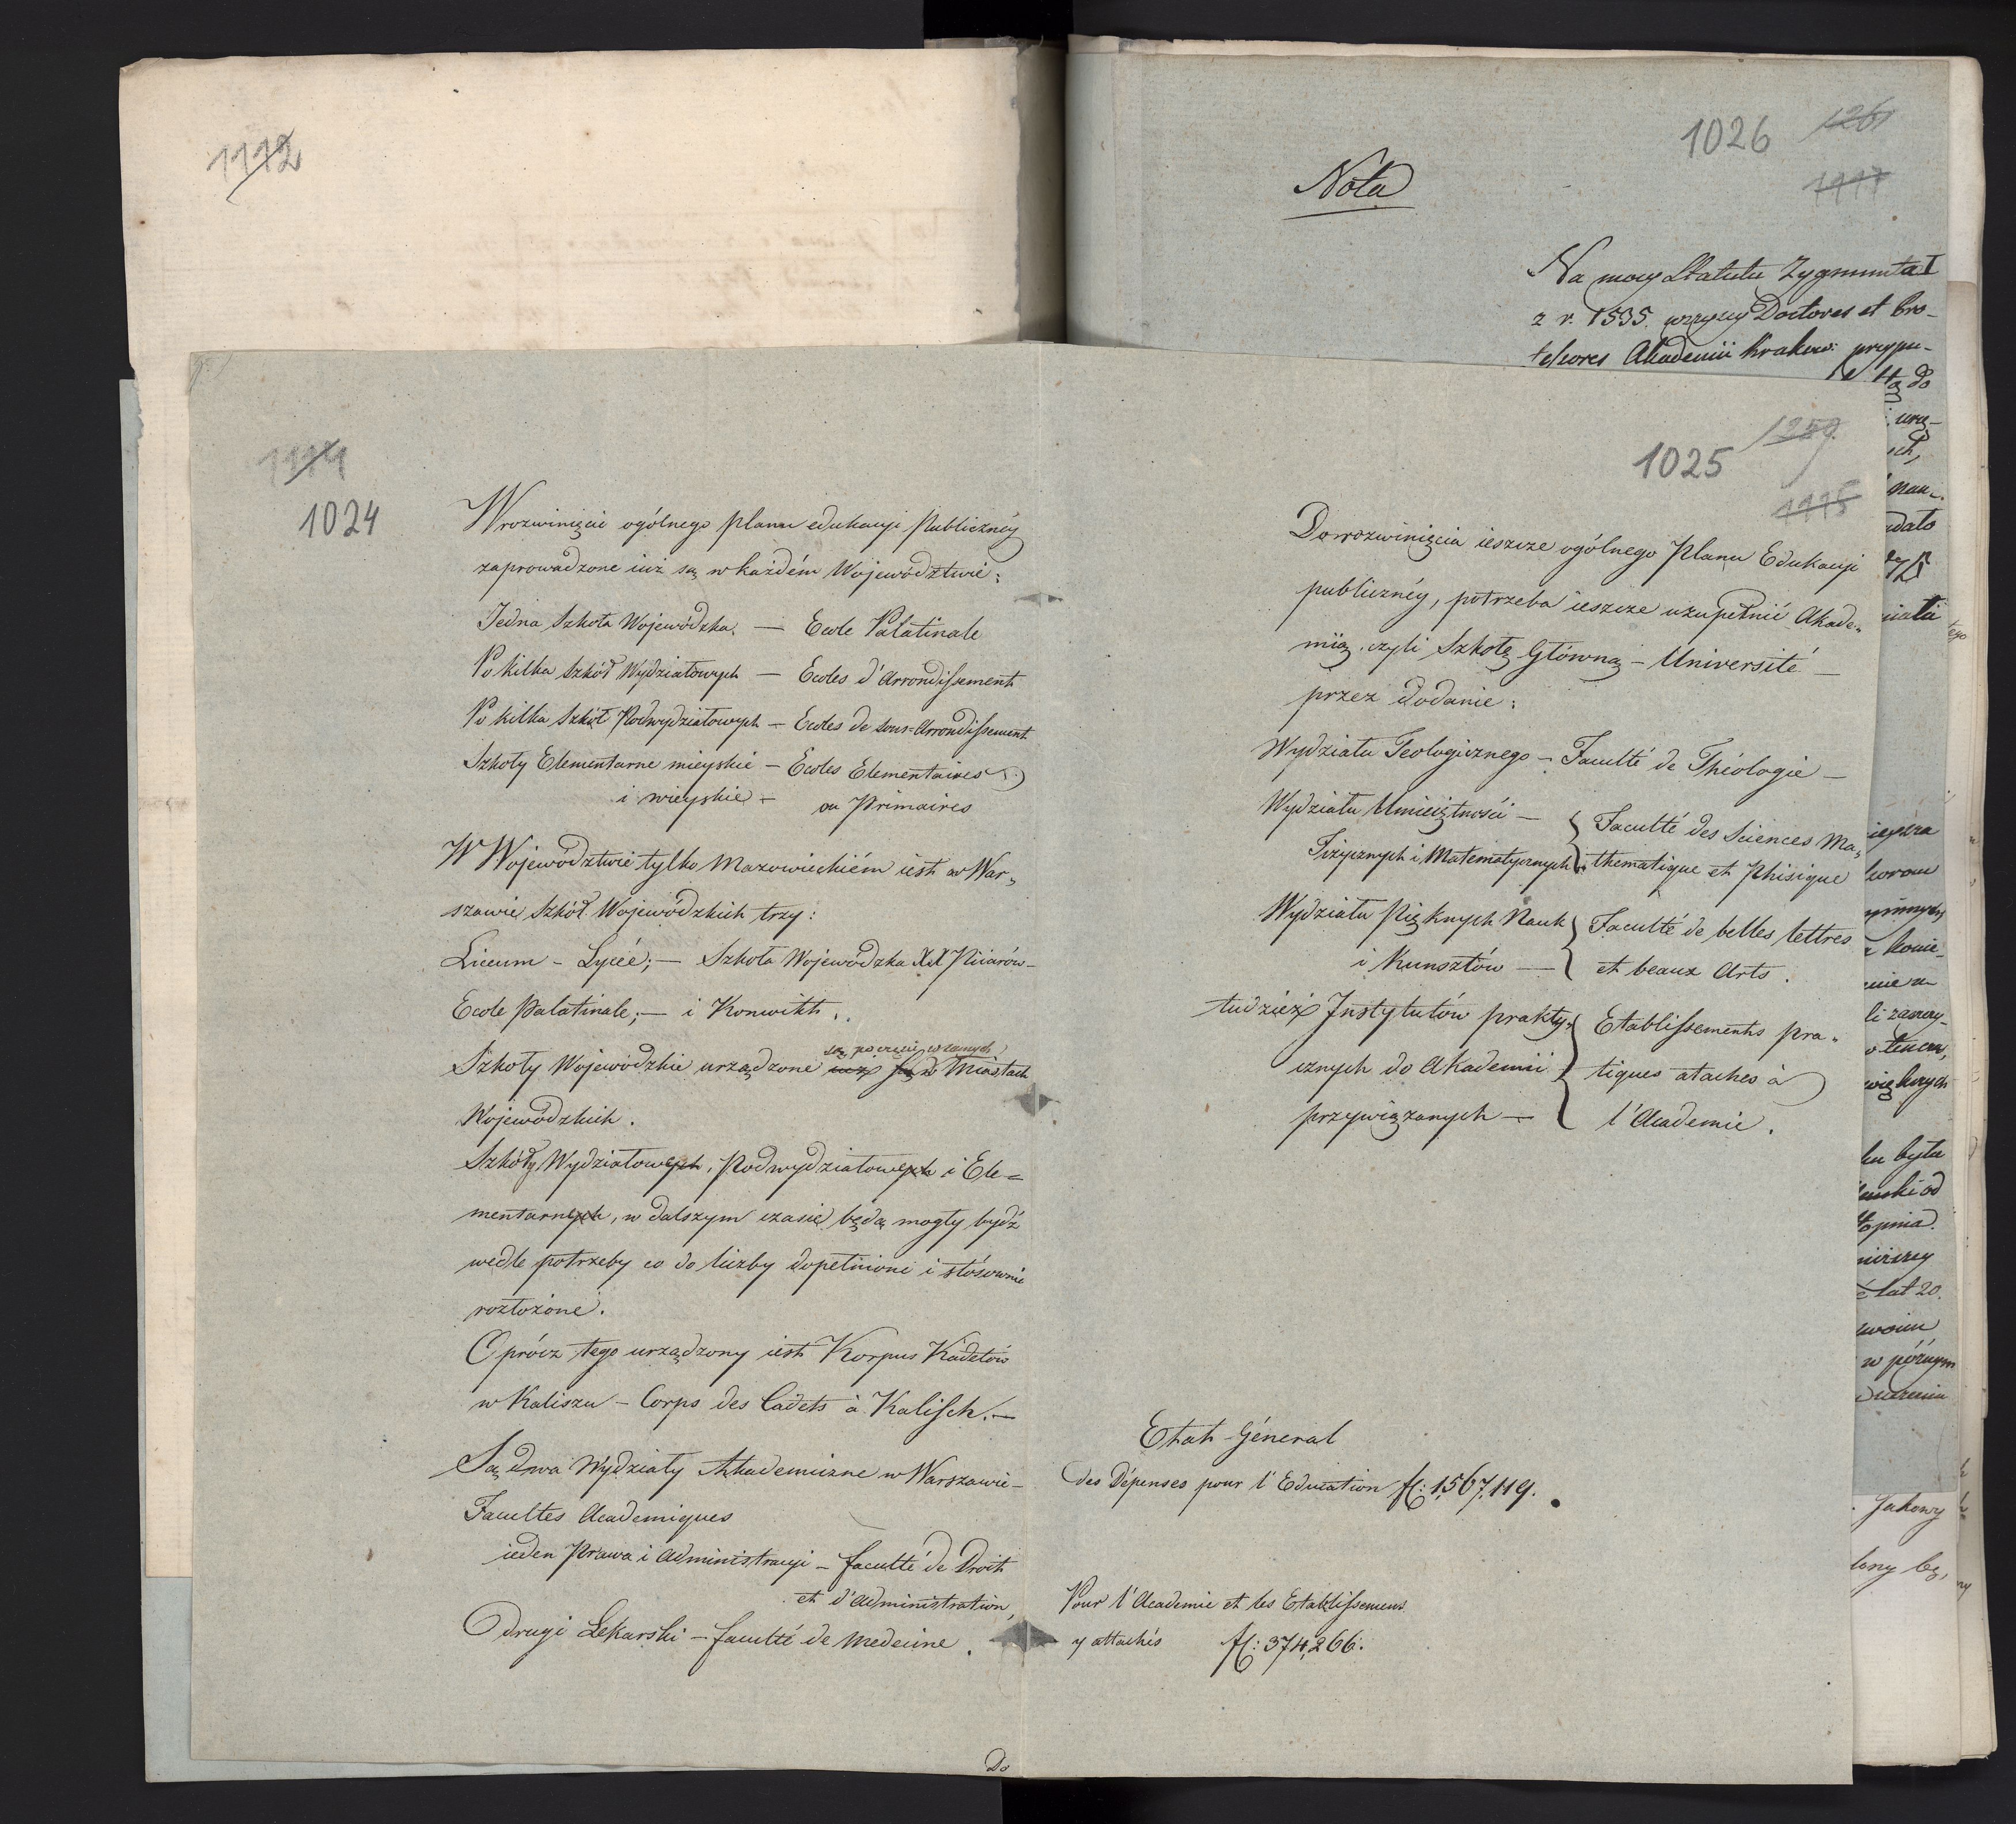 1112
1114
1024
W rozwinięcie ogólnego planu edukacyi Publicznéy
zaprowadzone iuż są w każdém Województwie:
Jedna Szkoła Wojewódzka. — Ecole Palatinale
Po kilka Szkół Wydziałowych — Ecoles d'Arrondissement
Po kilka Szkół Podwydziałowych — Ecoles de sous-Arrondissement
Szkoły Elementarne mieyskie — Ecoles Elementaires
i wieyskie — ou Primaires
W Województwie tylko Mazowieckiém iest w War„
szawie Szkół Wojewódzkich trzy:
Liceum – Lyceé; — Szkoła Wojewódzka XX Piiarów –
Ecole Palatinale; — i Konwikt.
są po części w samych
Szkoły Wojewódzkie urządzone iuż są w Miastach
Wojewódzkich.
Szkoły Wydziałowych, Podwydziałowych i Ele=
mentarnych, w dalszym czasie będą mogły bydź
wedle potrzeby co do liczby dopełnione i stósownie
rozłożone.
Oprócz tego urządzony iest Korpus Kadetów
w Kaliszu – Corps des Cadets à Kalisch. —
Są dwa Wydziały Akademiczne w Warszawie –
Facultes Academiques
ieden Prawa i Administracyi – faculté de Droit
et d'Administration,
drugi Lekarski – faculté de Medecine.
Do
1026 126
1117
Nota
Na mocy Statutu Zygmunta I
z r. 1535. wszyscy Doctores et Pro-
fessores Akademii Krakow: przypu-
1025
1115
Do rozwinięcia ieszcze ogólnego Planu Edukacyi
publicznéy, potrzeba ieszcze uzupełnić Akade„
miią, czyli Szkołę Główną – Université —
przez dodanie:
Wydziału Teologicznego – Faculté de Théologie —
Wydziału Umieiętności — Faculté des Sciences Ma„
Fizycznych i Matematycznych thematique et Phisique
Wydziału Pięknych Nauk Faculté de belles lettres
i Kunsztów — et beaux Arts.
tudzież Instytutów prakty„ Etablissements pra„
cznych do Akademii tiques ataches à
przywiązanych — l'Academie.
Etat Géneral
des Dépenses pour l'Education fl: 1,567,119.
Pour l'Academie et les Etablissemens
y attachés fl: 374,266.